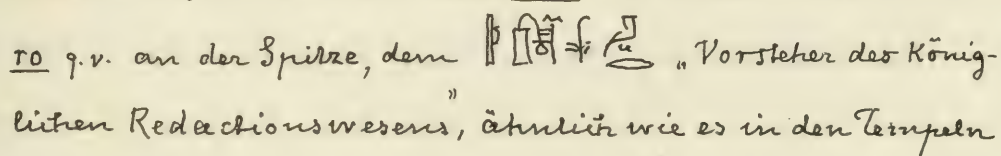 ro q.v. an der Spitze, dem „Vorsteher des König-
lichen Redactionswesens", ähnlich wie es in den Tempeln